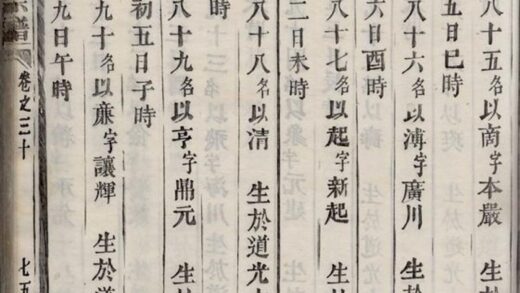 八十五名以商字本嚴 生於
五日巳時
八十六名以溥字廣川 生於
六日酉時
八十七名以起字新起 生於
二日未時
八十八名以清 生於道光
時
八十九名以亨字鼎元 生於
初五日子時
九十名以廉字讓輝 生於道
九日午時
宗譜
卷之三十
七五